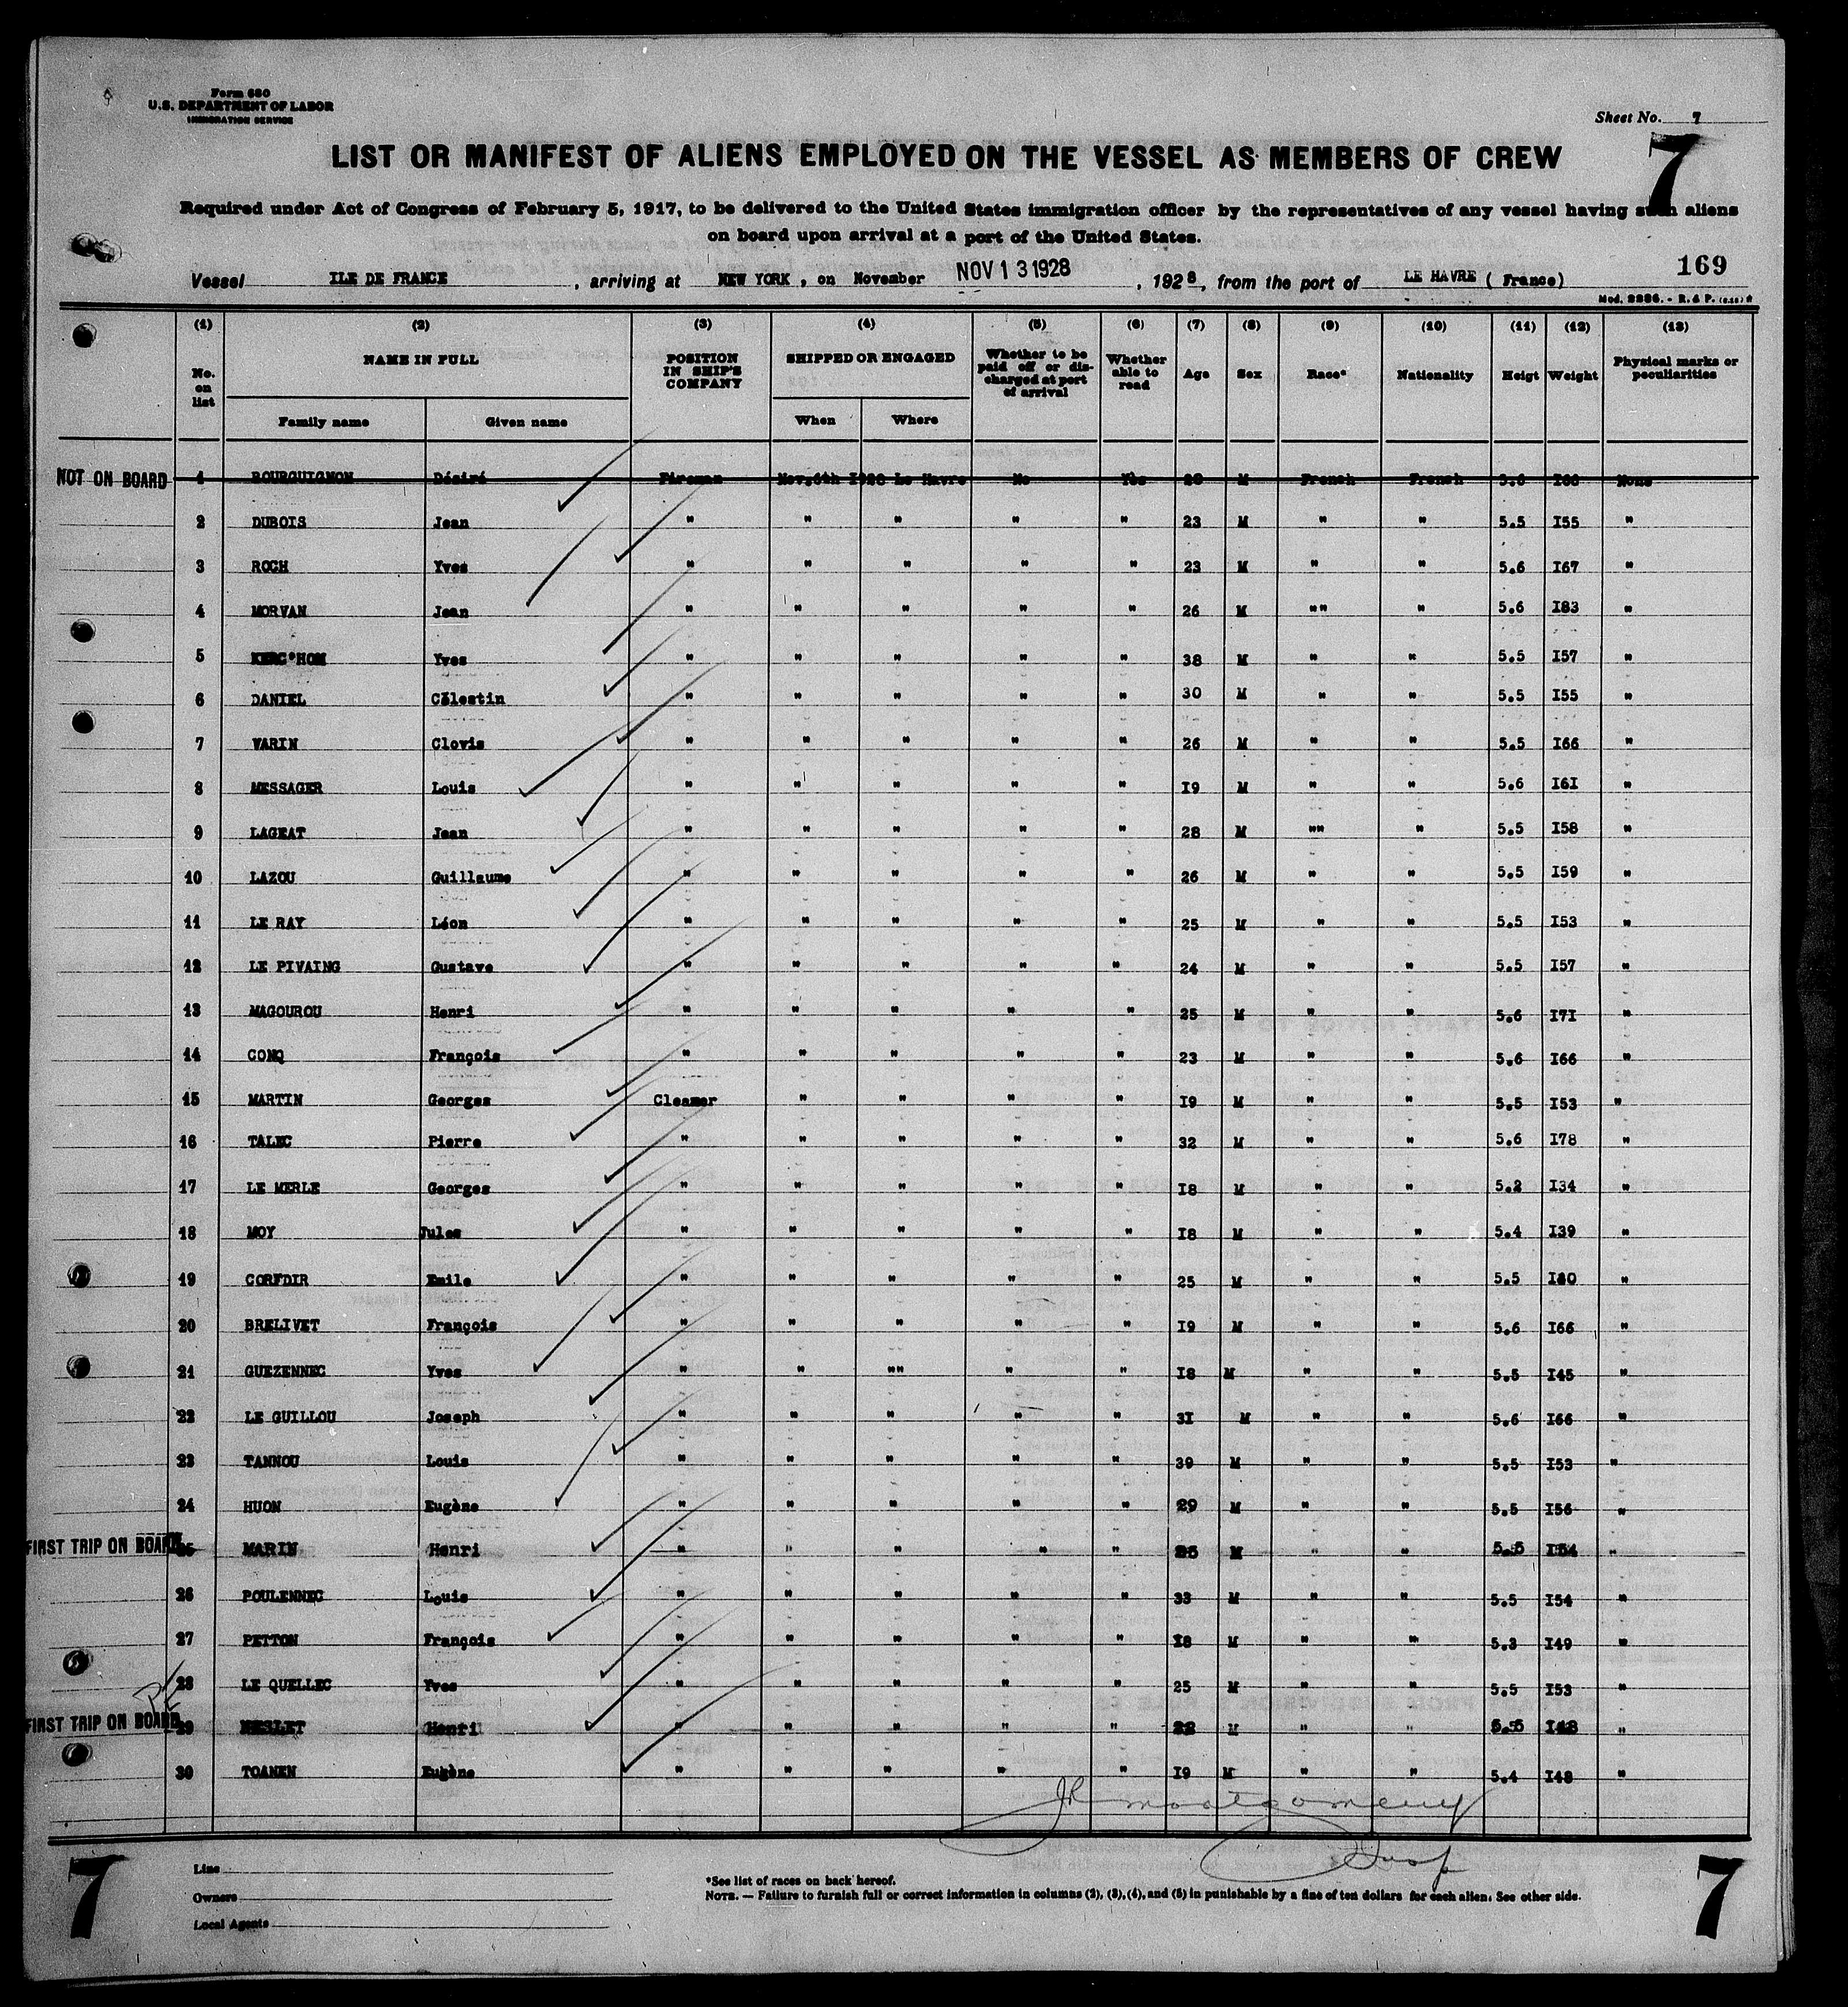 Form 680
U.S. DEPARTMENT OF LABOR
IMMIGRATION SERVICE
Sheet No. 7
LIST OR MANIFEST OF ALIENS EMPLOYED ON THE VESSEL AS MEMBERS OF CREW
7
Required under Act of Congress of February 5, 1917, to be delivered to the United States immigration officer by the representatives of any vessel having such aliens
on board upon arrival at a port of the United States.
Vessel ILE DE FRANCE, arriving at NEW YORK, on November NOV 13 1928, 1928, from the port of LE HAVRE (France)
169
Mod. 2286. - R. & P.
(1) (2) (3) (4) (5) (6) (7) (8) (9) (10) (11) (12) (13)
No. on list NAME IN FULL POSITION IN SHIP'S COMPANY SHIPPED OR ENGAGED Whether to be paid off or discharged at port of arrival Whether able to read Age Sex Race* Nationality Heigt Weight Physical marks or peculiarities
Family name Given name When Where
NOT ON BOARD 1 BOURGUIGNON Désiré Fireman Nov.6th 1928 Le Havre No Yes M French French None
2 DUBOIS Jean " " " " " 23 M " " 5.5 I55 "
3 ROCH Yves " " " " " 23 M " " 5.6 I67 "
4 MORVAN Jean " " " " " 26 M "" " 5.6 I83 "
5 KERC'HOM Yves " " " " " 38 M " " 5.5 I57 "
6 DANIEL Célestin " " " " " 30 M " " 5.5 I55 "
7 VARIN Clovis " " " " " 26 M " " 5.5 I66 "
8 MESSAGER Louis " " " " " I9 M " " 5.6 I6I "
9 LAGEAT Jean " " " " " 28 M "" " 5.5 I58 "
10 LAZOU Guillaume " " " " " 26 M " " 5.5 I59 "
11 LE RAY Léon " " " " " 25 M " " 5.5 I53 "
12 LE PIVAING Gustave " " " " " 24 M " " 5.5 I57 "
13 MAGOUROU Henri " " " " " 25 M " " 5.6 I7I "
14 CONQ François " " " " " 23 M " " 5.6 I66 "
15 MARTIN Georges Cleaner " " " " I9 M " " 5.5 I53 "
16 TALEC Pierre " " " " " 32 M " " 5.6 I78 "
17 LE MERLE Georges " " " " " I8 M " " 5.2 I34 "
18 MOY Jules " " " " " I8 M " " 5.4 I39 "
19 CORFDIR Emile " " " " " 25 M " " 5.5 "
20 BRELIVET François " " " " " I9 M " " 5.6 I66 "
21 GUEZENNEC Yves " " "" " " I8 M " " 5.5 I45 "
22 LE GUILLOU Joseph " " " " " 3I M " " 5.6 I66 "
23 TANNOU Louis " " " " " 39 M " " 5.5 I53 "
24 HUON Eugène " " " " " 29 M " " 5.5 I56 "
FIRST TRIP ON BOARD 25 MARIN Henri " " " " " 25 M " " 5.5 I54 "
26 POULENNEC Louis " " " " " 33 M " " 5.5 I54 "
27 PETTON François " " " " " I8 M " " 5.3 I49 "
28 LE QUELLEC Yves " " " " " 25 M " " 5.5 I53 "
FIRST TRIP ON BOARD 29 Henri " " " " " 22 M " " 5.5 I48 "
30 TOANEN Eugène " " " " " I9 M " " 5.4 I48 "
JR Montgomery
Insp
7
Line
Owners
Local Agents
*See list of races on back hereof.
NOTE. — Failure to furnish full or correct information in columns (2), (3), (4), and (5) in punishable by a fine of ten dollars for each alien. See other side.
7